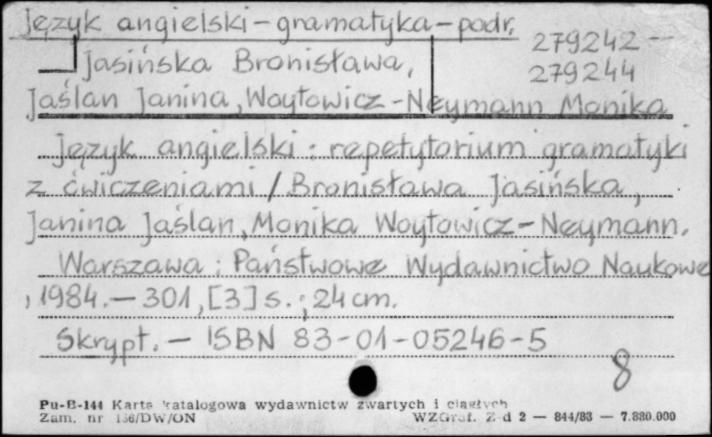 Język angielski - gramatyka - podr.
279242 -
279244
Jasińska Bronisława,
Jaślan Janina, Woytowicz-Neymann Monika
Język angielski : repetytorium gramatyki
z ćwiczeniami / Bronisława Jasińska,
Janina Jaślan, Monika Woytowicz-Neymann.
Warszawa : Państwowe Wydawnictwo Naukowe
, 1984. - 301, [3] s. ; 24 cm.
Skrypt. - ISBN 83-01-05246-5
8
Pu-B-144 Karta katalogowa wydawnictw zwartych i ciągłych
Zam. nr 136/DW/ON WZGraf. Z-d 2 — 844/83 — 7.880.000